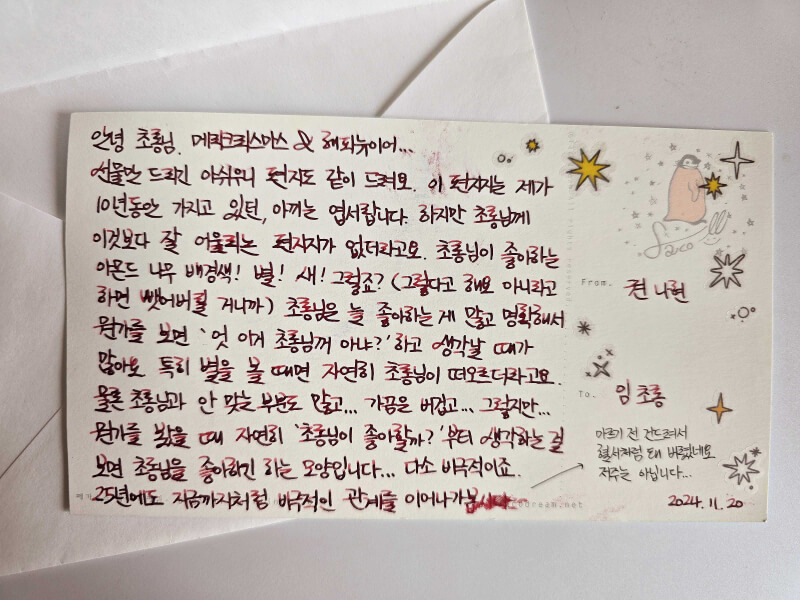 안녕 초롱님. 메리크리스마스 & 해피뉴이어...
선물만 드리긴 아쉬우니 편지도 같이 드려요. 이 편지지는 제가
10년동안 가지고 있던, 아끼는 엽서랍니다. 하지만 초롱님께
이것보다 잘 어울리는 편지지가 없더라고요. 초롱님이 좋아하는
아몬드 나무 배경색! 별! 새! 그렇죠? (그렇다고 해요 아니라고
하면 뺏어버릴 거니까) 초롱님은 늘 좋아하는 게 많고 명확해서
뭔가를 보면 '엇 이거 초롱님꺼 아냐?' 하고 생각날 때가
많아요. 특히 별을 볼 때면 자연히 초롱님이 떠오르더라고요.
물론 초롱님과 안 맞는 부분도 많고... 가끔은 버겁고... 그렇지만...
뭔가를 봤을 때 자연히 '초롱님이 좋아할까?' 부터 생각하는 걸
보면 초롱님을 좋아하긴 하는 모양입니다... 다소 비극적이죠.
25년에도 지금까지처럼 비극적인 관계를 이어나가봅시다
From. 권 나현
To. 임 초롱
마르기 전 건드려서
혈서처럼 돼 버렸네요
저주는 아닙니다...
2024. 11. 20